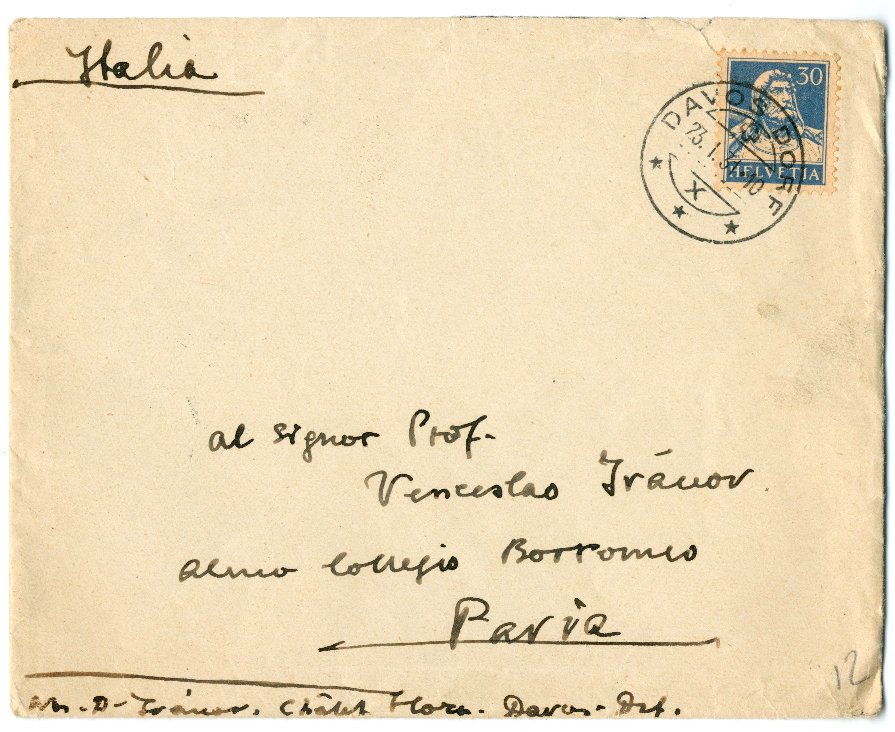 Italia
30
HELVETIA
DAVOS DORF
23.I.31.10
X
al Signor Prof.
Venceslao Ivánov
Almo Collegio Borromeo
Pavia
D. Ivánov. Châlet Flora. Davos-Drf.
12